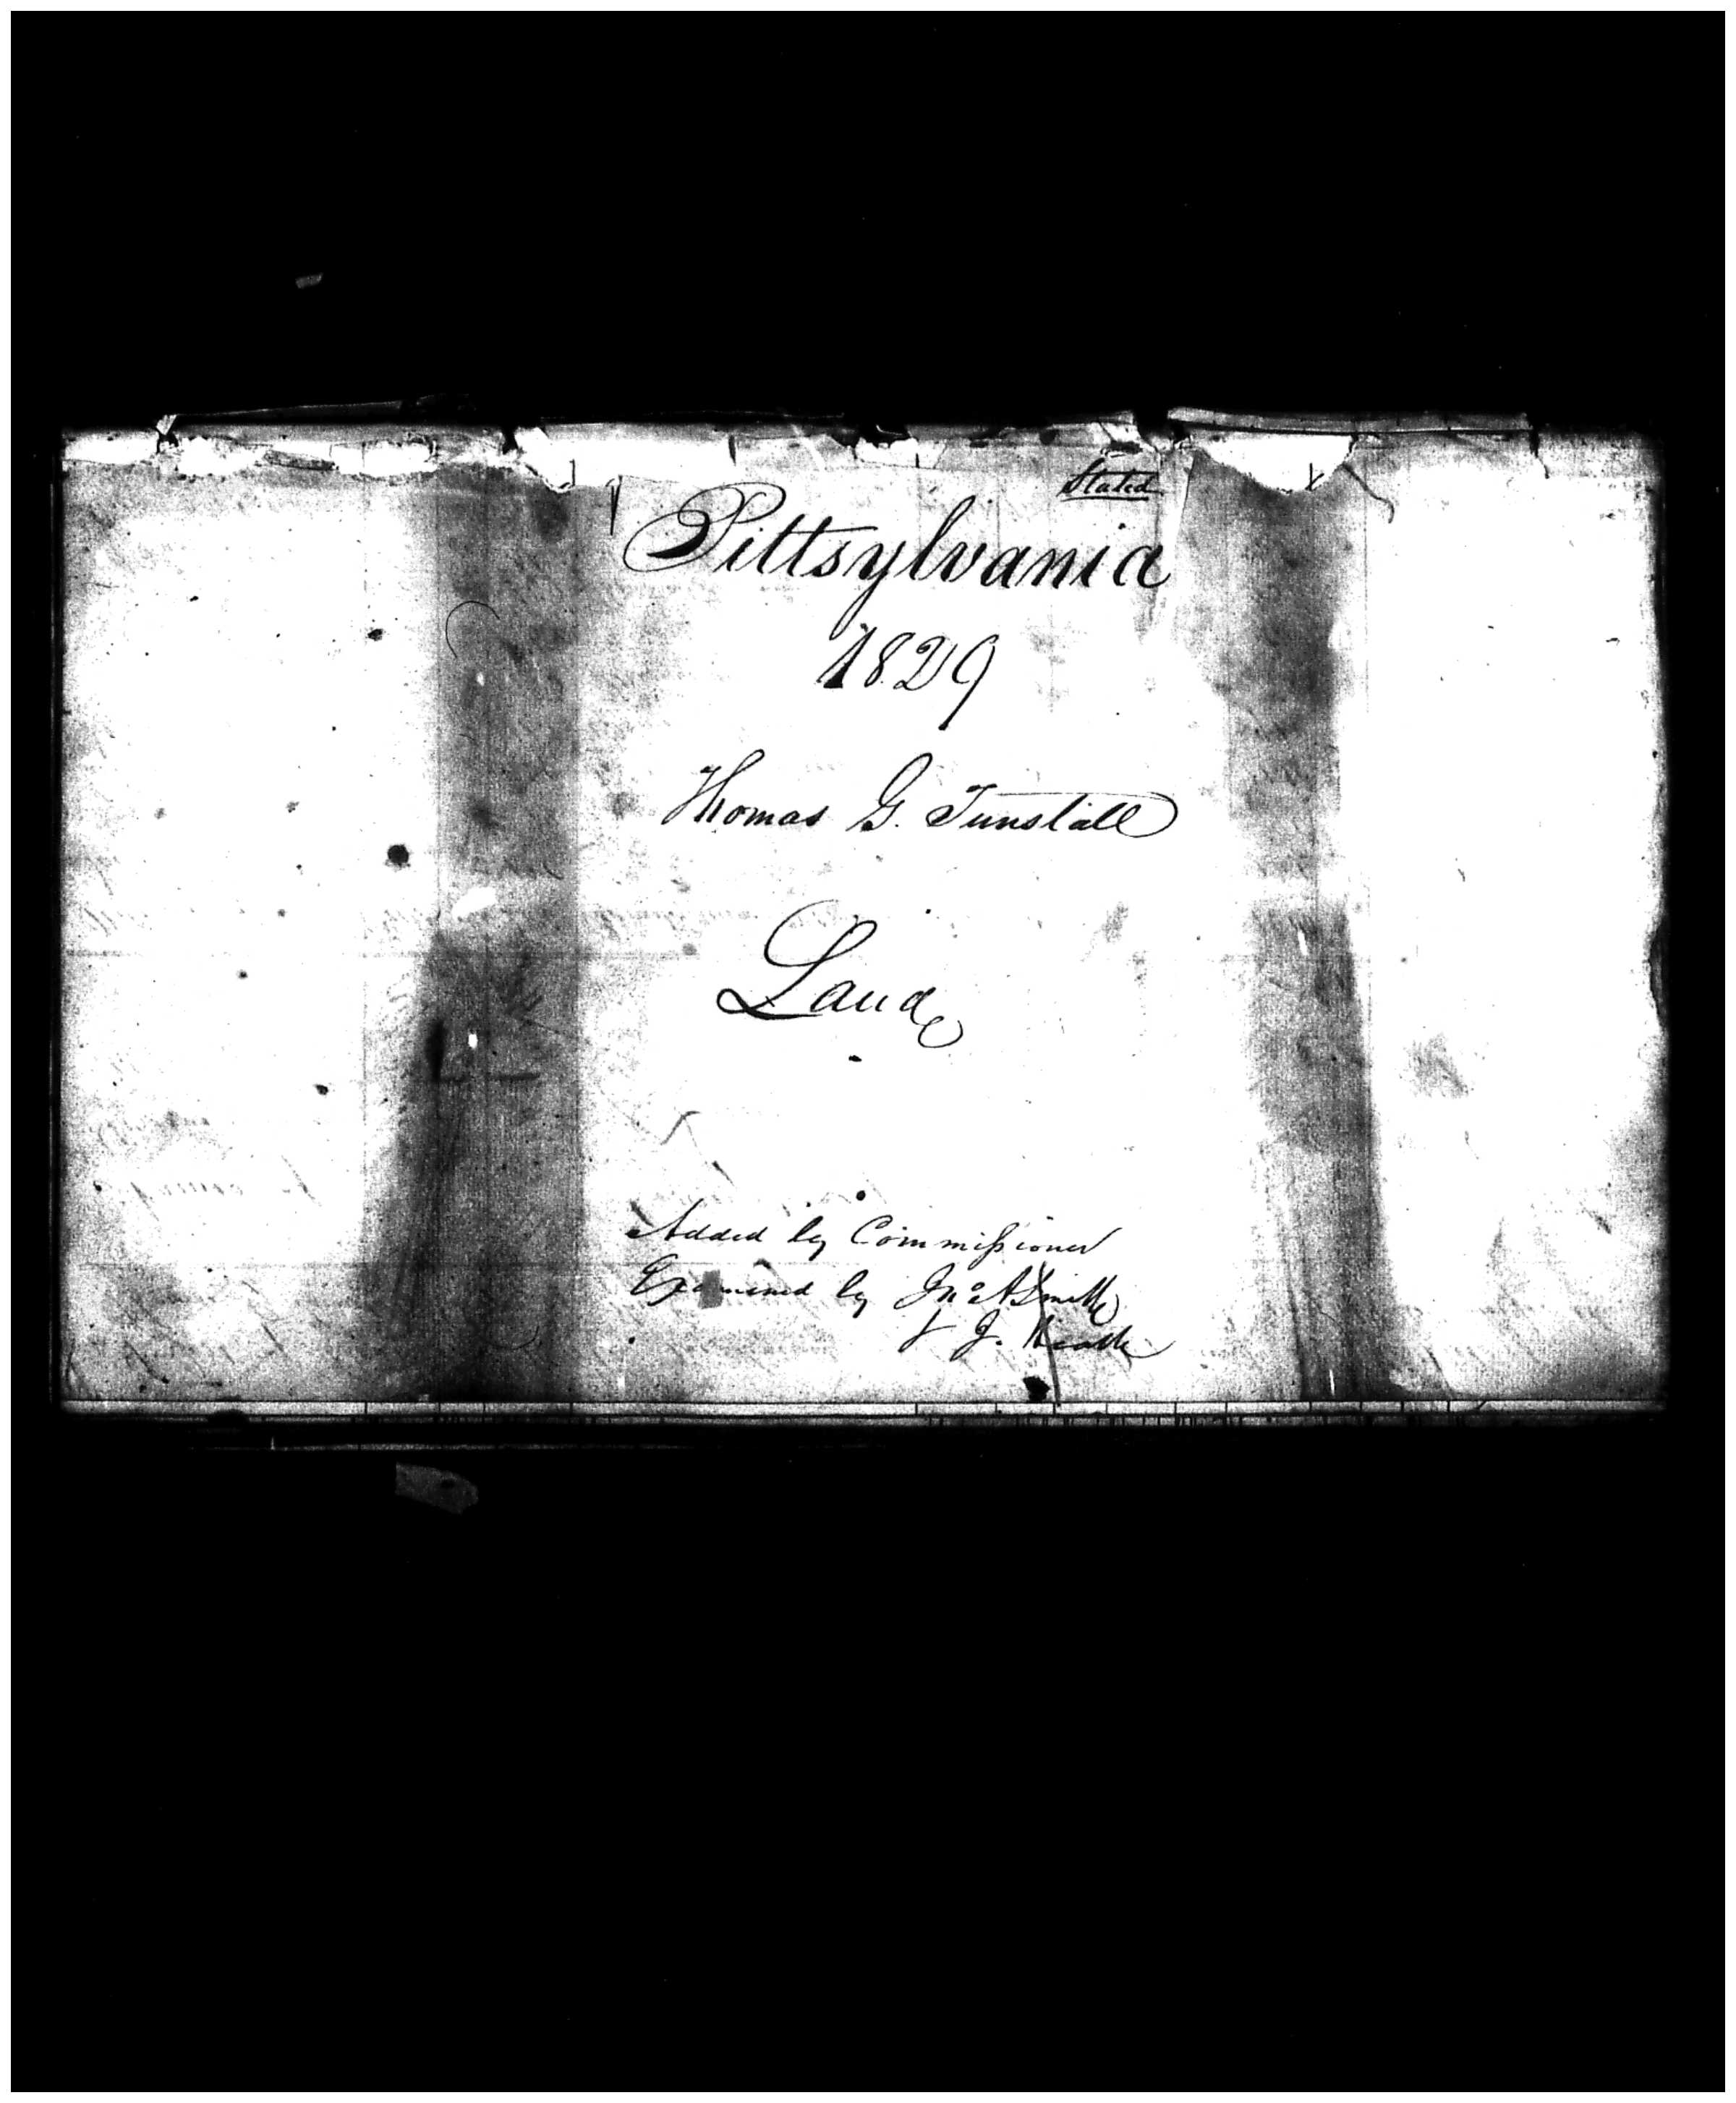 Stated
Pittsylvania
1829
Thomas G. Tunstall
Land
Added by Commissioner
Examined by Jno A Smith
& J. Heath